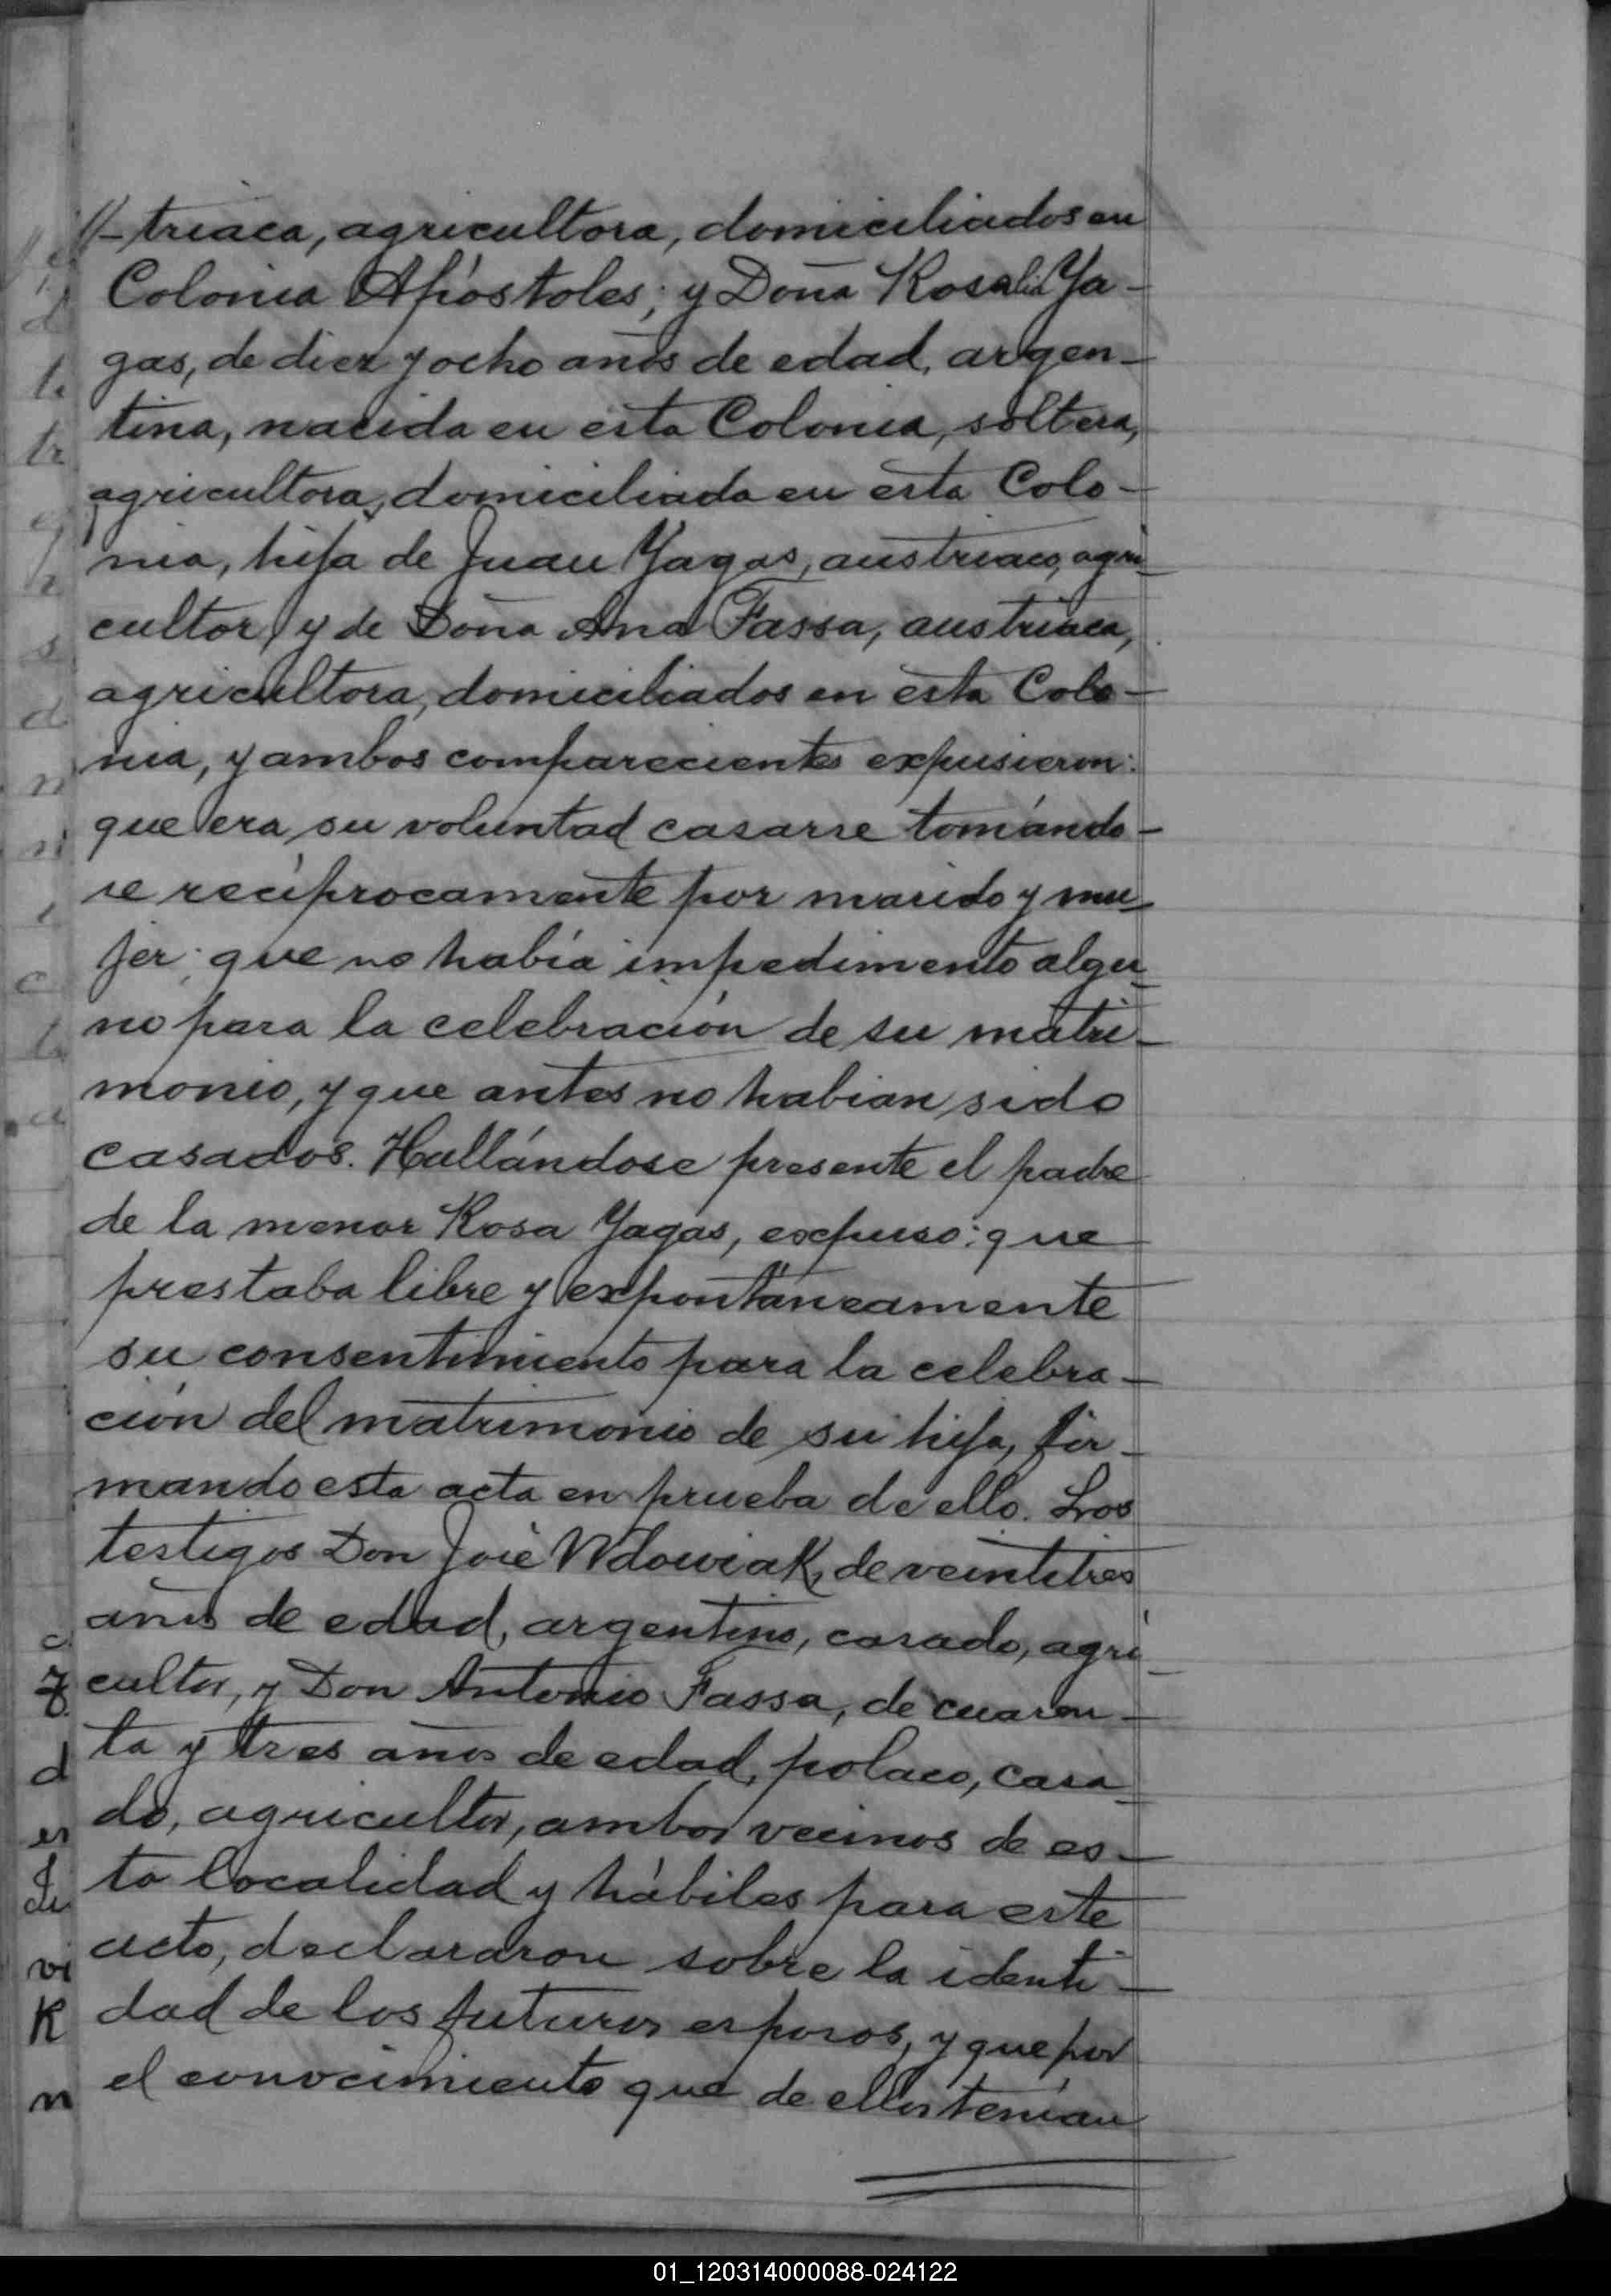 //-triaca, agricultora, domiciliados en
Colonia Apóstoles; y Doña Rosalia Ya-
gas, de diez y ocho años de edad, argen-
tina, nacida en esta Colonia, soltera,
agricultora, domiciliada en esta Colo-
nia, hija de Juan Yagas, austriaco, agri-
cultor, y de Doña Ana Fassa, austriaca,
agricultora, domiciliados en esta Colo-
nia, y ambos comparecientes expusieron:
que era su voluntad casarse tomándo-
se recíprocamente por marido y mu-
jer; que no había impedimento algu-
no para la celebración de su matri-
monio, y que antes no habian sido
casados. Hallándose presente el padre
de la menor Rosa Yagas, expuso: que
prestaba libre y expontáneamente
su consentimiento para la celebra-
ción del matrimonio de su hija, fir-
mando esta acta en prueba de ello. Los
testigos Don José Wdowiak, de veintitres
años de edad, argentino, casado, agri-
cultor, y Don Antonio Fassa, de cuaren-
ta y tres años de edad, polaco, casa-
do, agricultor, ambos vecinos de es-
ta localidad y hábiles para este
acto, declararon sobre la identi-
dad de los futuros esposos, y que por
el conocimiento que de ellos tenían
01_120314000088-024122